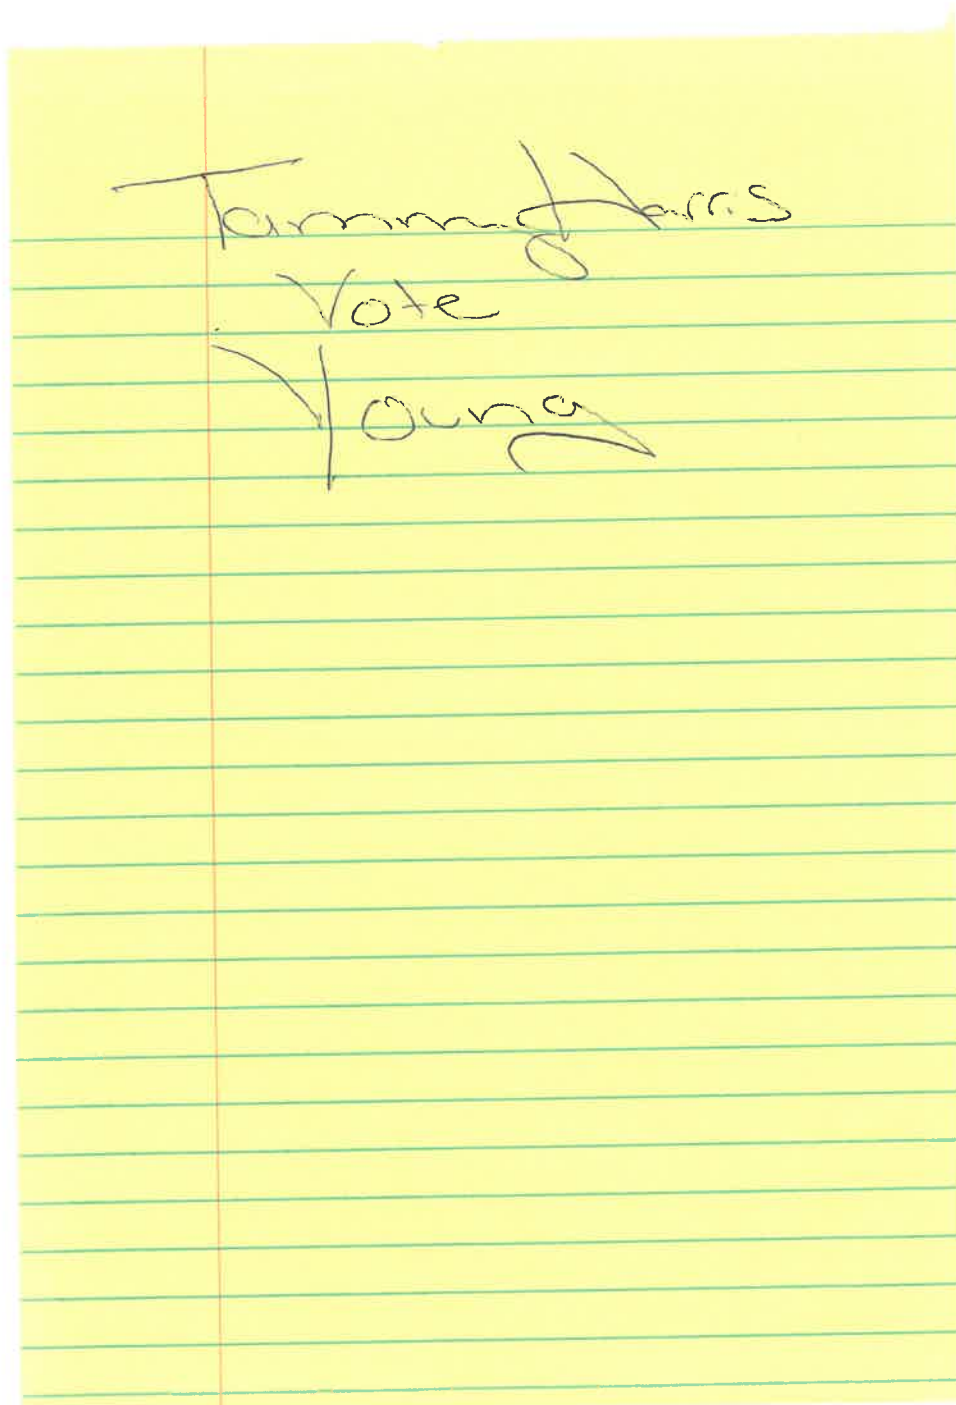 Tammy Harris
Vote
Young